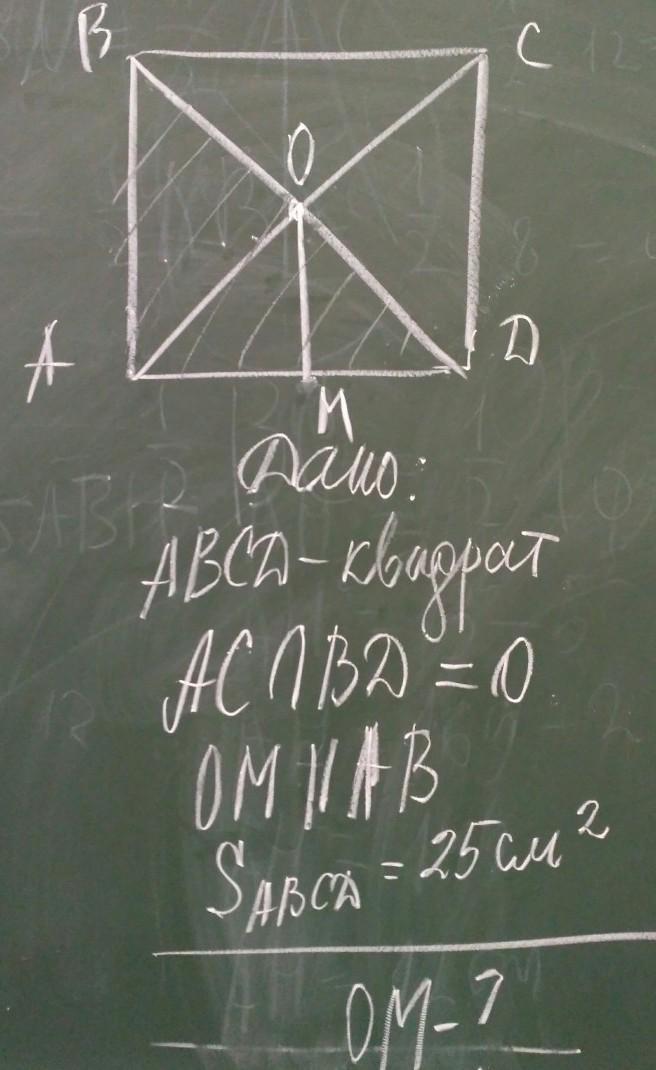 B C
O
A D
M
Дано:
ABCD - квадрат
AC ∩ BD = O
OM || AB
S ABCD = 25 см²
OM - ?